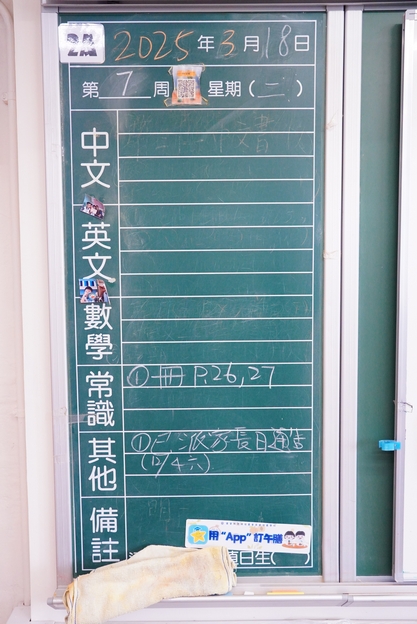 2A 2025年3月18日
第7周 星期(二)
中文
英文
數學
常識
①冊 P.26,27
其他
①已派家長日通告
(12/4 六)
備註
用“App”訂午膳
值日生( )